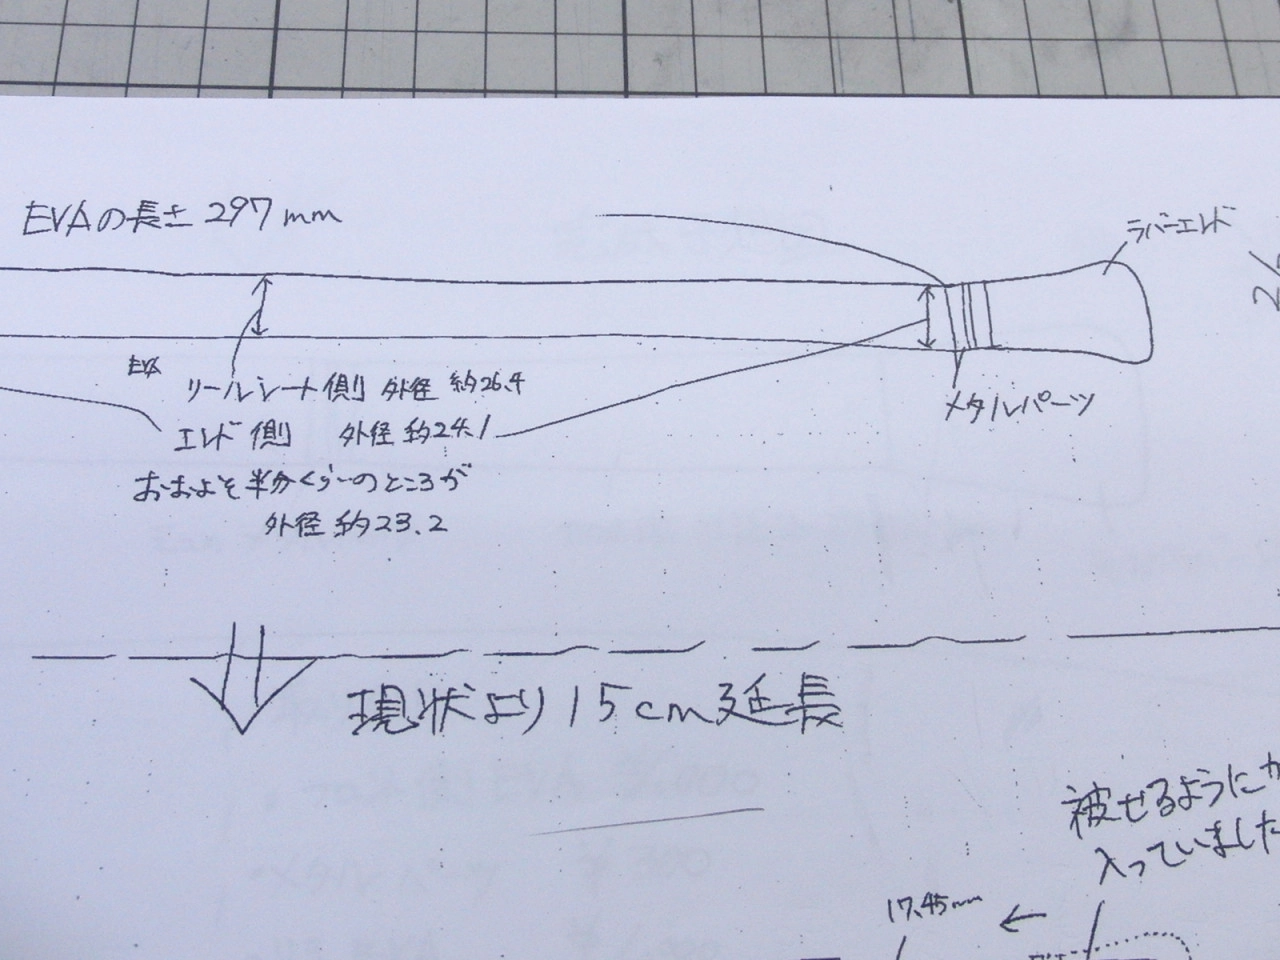 EVAの長さ 297mm
ラバーエンド
EVA
リールシート側 外径 約26.4
エンド側 外径 約24.1
メタルパーツ
おおよそ半分くらいのところが
外径 約23.2
現状より15cm延長
被せるようにカ
入っていました
17.45mm